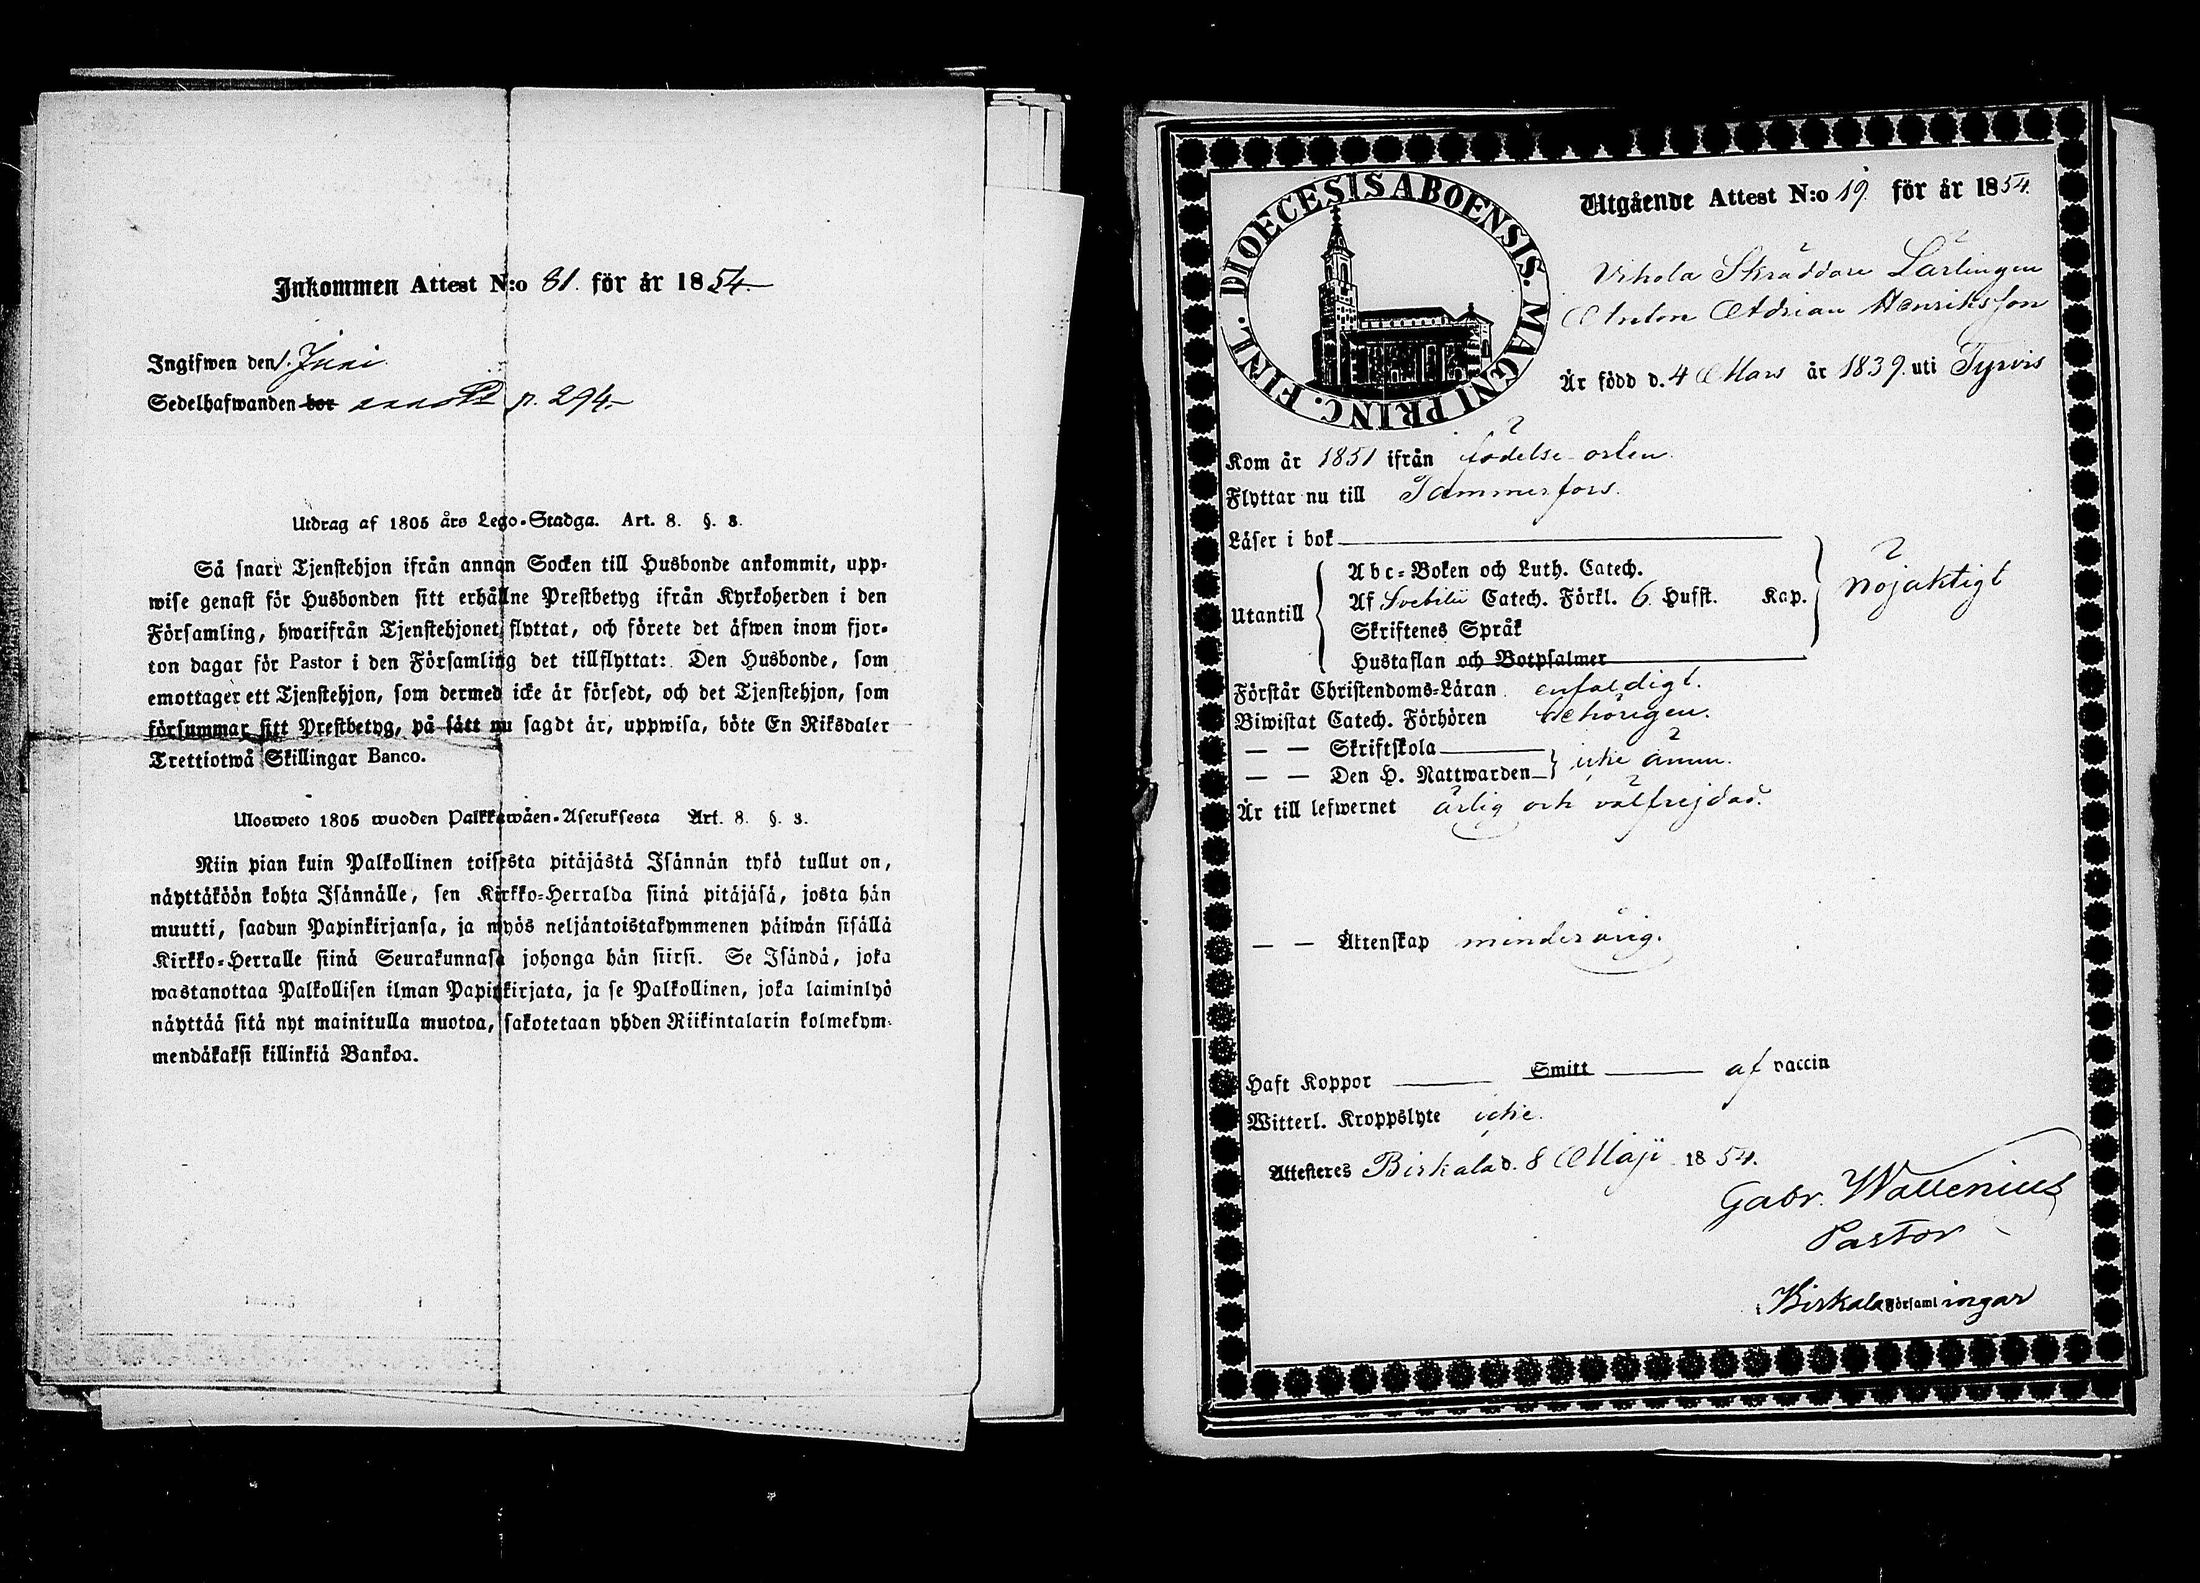 Inkommen Attest N:o 81. för år 1854.
Ingifwen den 1. Juni
Sedelhafwanden bor p. 294.
Utdrag af 1805 års Lego-Stadga. Art. 8. §. 3.
Så snart Tjenstehjon ifrån annan Socken till Husbonde ankommit, upp-
wise genast för Husbonden sitt erhållne Prestbetyg ifrån Kyrkoherden i den
Församling, hwarifrån Tjenstehjonet flyttat, och förete det äfwen inom fjor-
ton dagar för Pastor i den Församling det tillflyttat: Den Husbonde, som
emottager ett Tjenstehjon, som dermed icke är försedt, och det Tjenstehjon, som
försummar sitt Prestbetyg, på sätt nu sagdt är, uppwisa, böte En Riksdaler
Trettiotwå Skillingar Banco.
Ulosweto 1805 wuoden Palkkawäen-Asetuksesta Art. 8. §. 3.
Niin pian kuin Palkollinen toisesta pitäjästä Isännän tykö tullut on,
näyttäköön kohta Isännälle, sen Kirkko-Herralda siinä pitäjäsä, josta hän
muutti, saadun Papinkirjansa, ja myös neljäntoistakymmenen päiwän sisällä
Kirkko-Herralle siinä Seurakunnasa johonga hän siirsi. Se Isändä, joka
wastanottaa Palkollisen ilman Papinkirjata, ja se Palkollinen, joka laiminlyö
näyttää sitä nyt mainitulla muotoa, sakotetaan yhden Riikintalarin kolmekym-
mendäkaksi killinkiä Bankoa.
DIOECESIS ABOENSIS. MAGNI PRINC. FINL.
Utgående Attest N:o 19. för år 1854.
Vihola Skräddare Lärlingen
Anton Adrian Henriksson
Är född d. 4 Mars år 1839. uti Tyrvis
Kom år 1851 ifrån födelse orten.
Flyttar nu till Tammerfors.
Läser i bok
Utantill
Abc-Boken och Luth. Catech.
Af Svebilii Catech. Förkl. 6. Husst. Kap.
Skriftenes Språk
Hustaflan och Botpsalmer
nöjaktigt
Förstår Christendoms-Läran enfaldigt.
Biwistat Catech. Förhören behörigen.
— — Skriftskola
— — Den H. Nattwarden
icke ännu.
Är till lefwernet ärlig och välfrejdad.
— — Äktenskap minderårig.
Haft Koppor Smitt af vaccin
Witterl. Kroppslyte icke.
Attesteres Birkala d. 8 Maji 1854.
Gabr. Wallenius
Pastor
i Birkala Församlingar